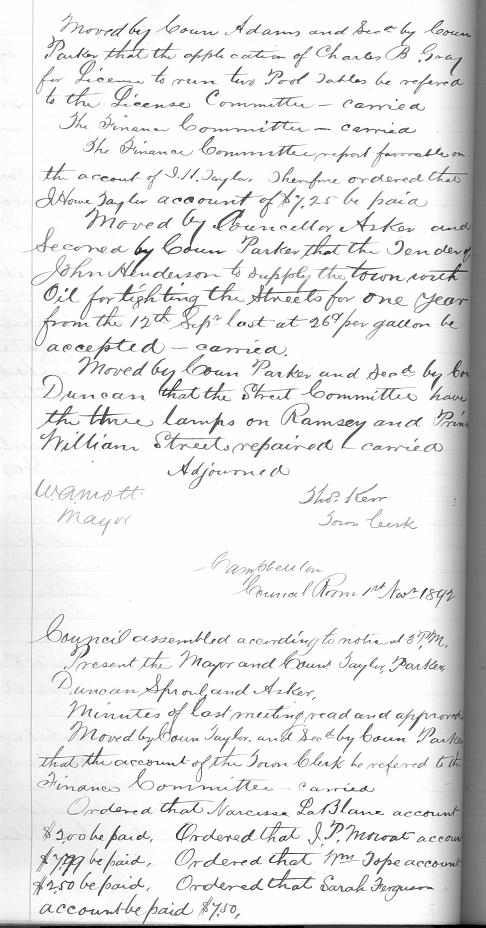 Moved by Coun Adams and Secd by Coun
Parker that the application of Charles B. Gray
for License to run two Pool Tables be refered
to the License Committee – carried
The Finance Committee – carried
The Finance Committee report favorable on
the account of J. H. Taylor. Therefore ordered that
J Howe Taylor account of $7.25 be paid
Moved by Councillor Asker and
Seconed by Coun Parker that the Tender of
John Henderson to supply the town with
Oil for lighting the Streets for one year
from the 12th Sepr last at 26¢ per gallon be
accepted – carried.
Moved by Coun Parker and Secd by Co
Duncan that the Street Committee have
the three lamps on Ramsey and Prin
William Streets repaired – carried
Adjourned
W A Mott Thos Kerr
Mayor Town Clerk
Campbellton
Council Room 1st Novr 1892
Council assembled according to notice at 3 P.M.
Present the Mayor and Couns Taylor, Parker,
Duncan Sproul and Asker,
Minutes of last meeting read and approved
Moved by Coun Taylor, and Secd by Coun Parke
that the account of the Town Clerk be refered to the
Finance Committee – carried
Ordered that Narcisse LaBlanc account
$2.00 be paid, Ordered that J. P. Mowat accoun
$7.99 be paid, Ordered that Wm Tope account
$2.50 be paid, Ordered that Sarah Ferguson
account be paid $7.50,